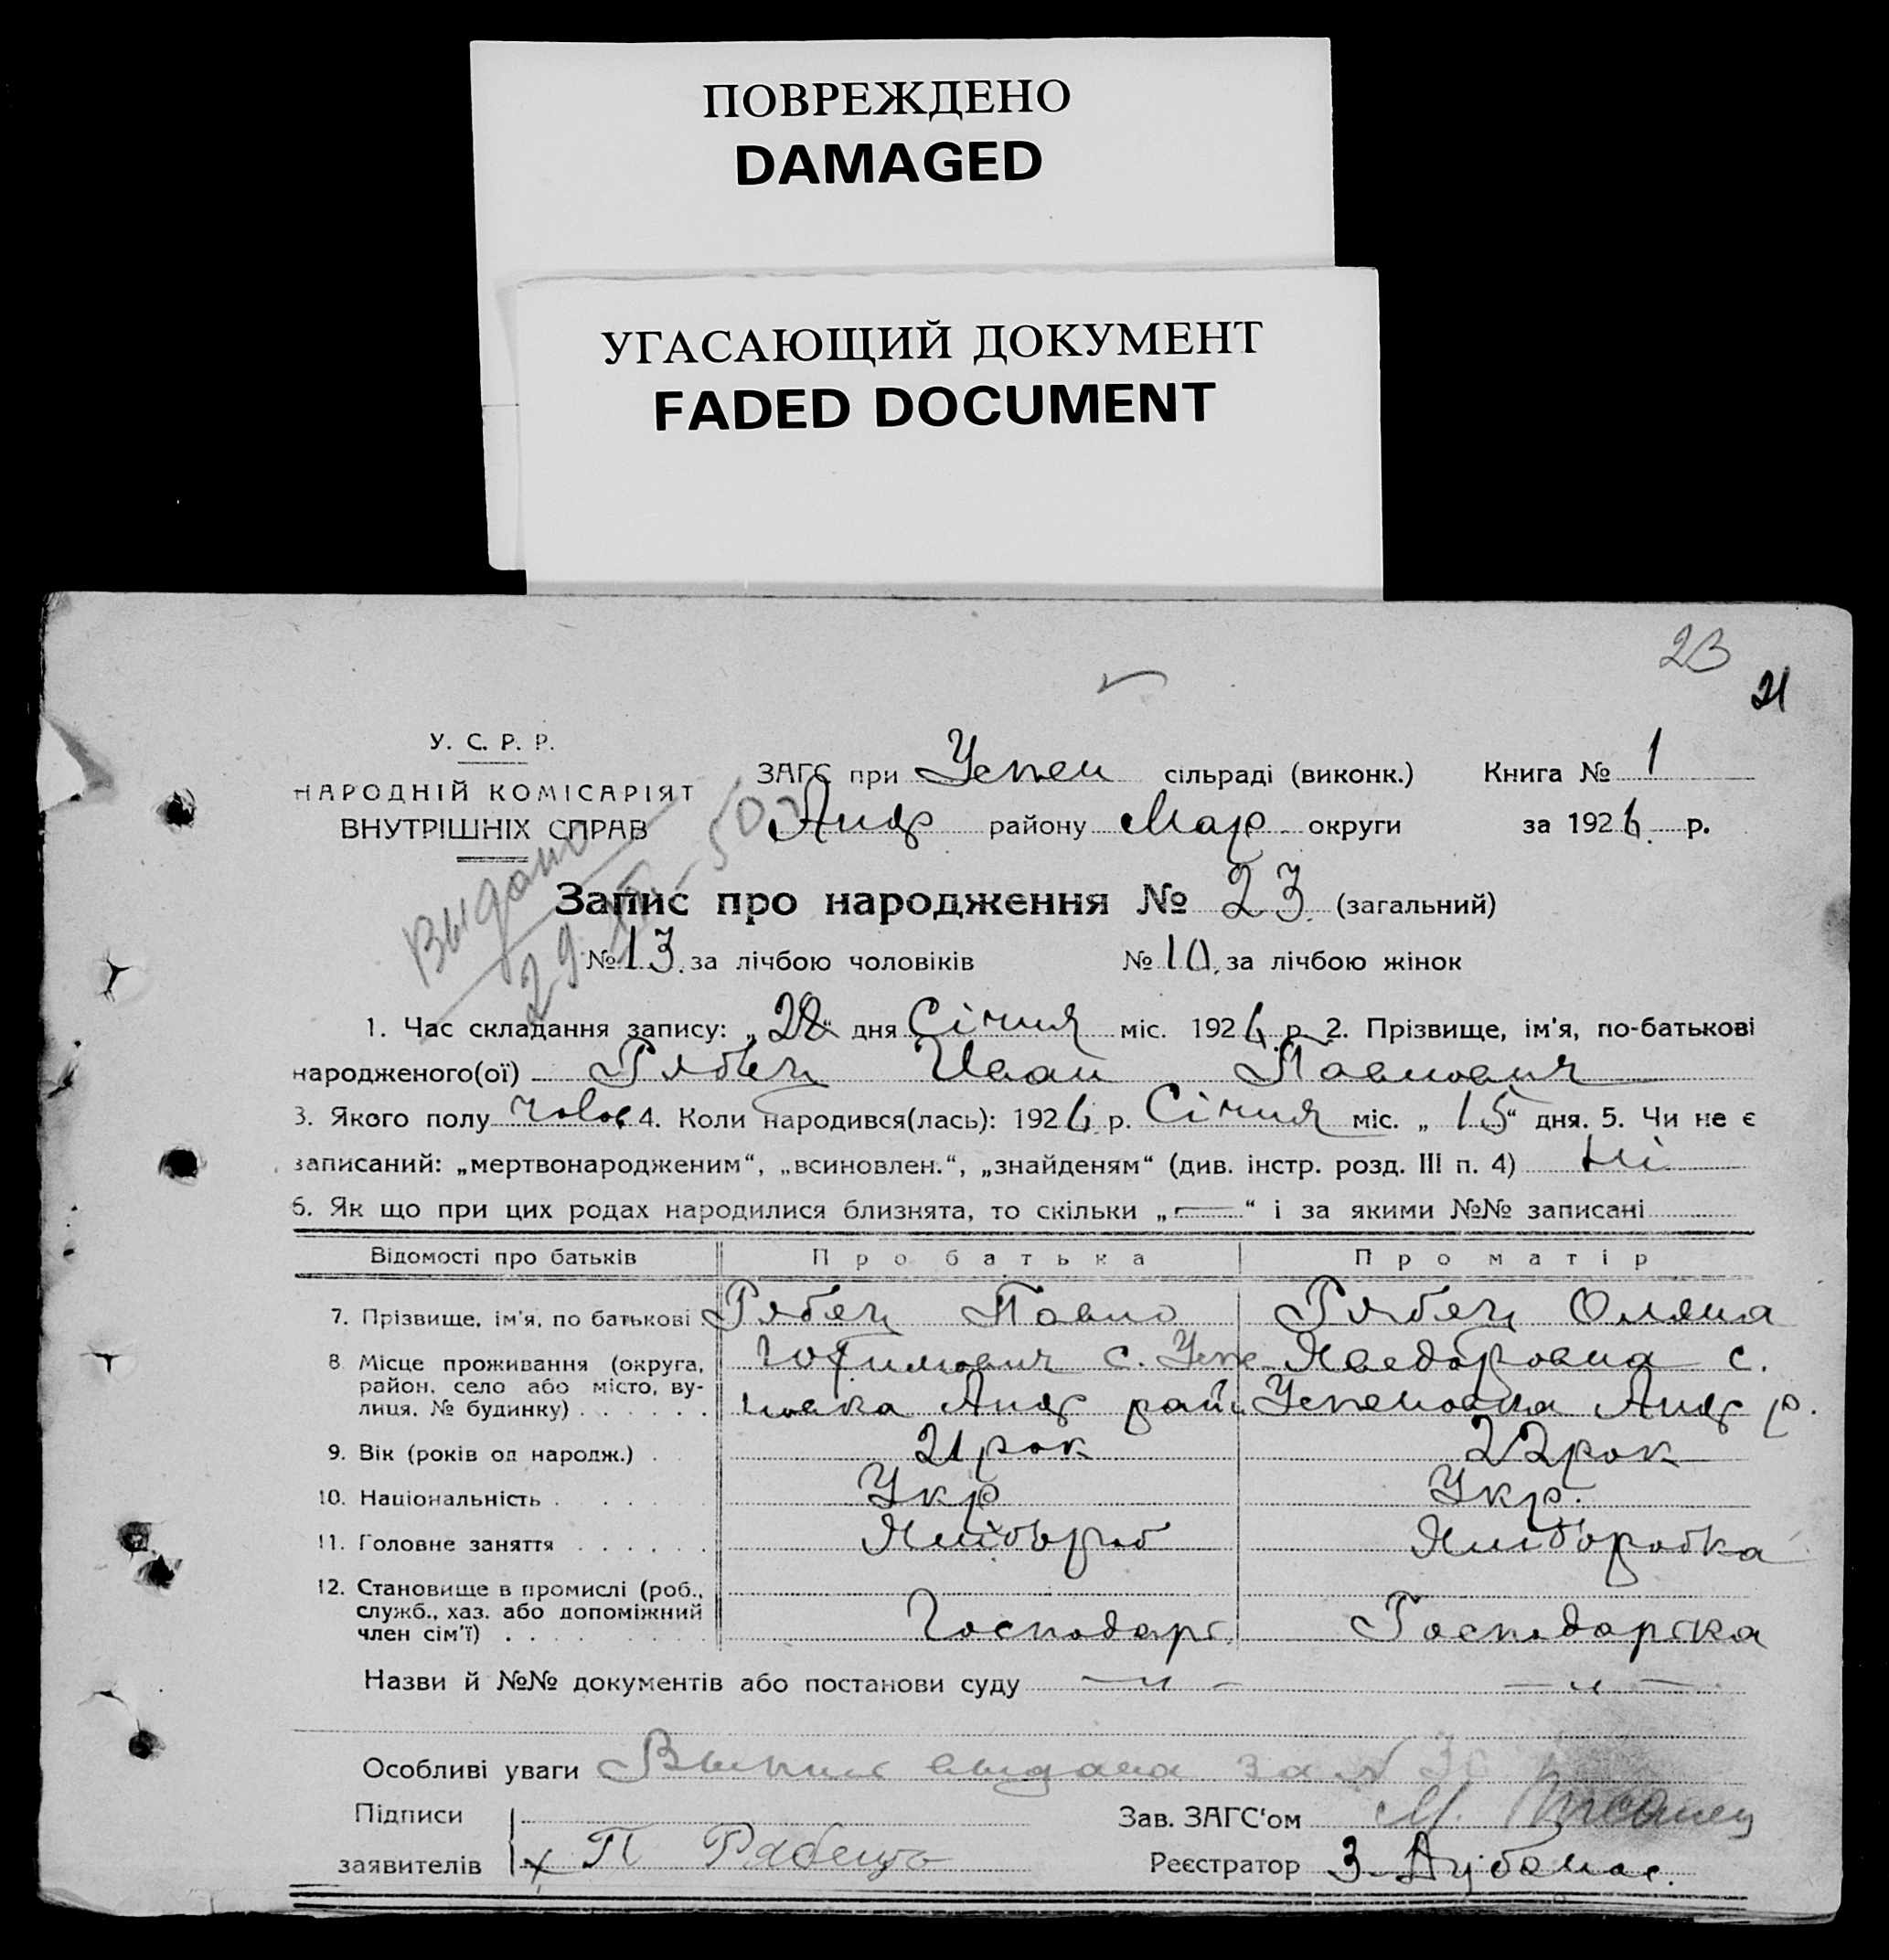 ПОВРЕЖДЕНО
DAMAGED
УГАСАЮЩИЙ ДОКУМЕНТ
FADED DOCUMENT
23
21
У. С. Р. Р.
НАРОДНІЙ КОМІСАРІЯТ
ВНУТРІШНІХ СПРАВ
ЗАГС при Успен сільраді (виконк.) Книга № 1
Андр району Мар округи за 1926 р.
Выдано
29
Запис про народження № 23 (загальний)
№ 13 за лічбою чоловіків № 10 за лічбою жінок
1. Час складання запису: „22“ дня Січня міс. 1926 р. 2. Прізвище, ім'я, по-батькові
народженого(ої) Рябец Иван Павлович
3. Якого полу чолов 4. Коли народився(лась): 1926 р. Січня міс. „15“ дня. 5. Чи не є
записаний: „мертвонародженим“, „всиновлен.“, „знайденям“ (див. інстр. розд. III п. 4) Ні
6. Як що при цих родах народилися близнята, то скільки „—“ і за якими №№ записані
Відомості про батьків Про батька Про матір
7. Прізвище, ім'я, по батькові Рябец Павло Рябец Оляна
8. Місце проживання (округа, район, село або місто, вулиця, № будинку) Юхимович с. Успеновка Андр рай Хведоровна с. Успеновка Андр р.
9. Вік (років од народж.) 21 рок 22 рок
10. Національність Укр Укр.
11. Головне заняття Хлібороб Хліборобка
12. Становище в промислі (роб., служб., хаз. або допоміжний член сім'ї) Господарс. Господарска
Назви й №№ документів або постанови суду — „ — — „ —
Особливі уваги Выпис выдана за №
Підписи
заявителів х П Рабець
Зав. ЗАГС'ом М.
Реєстратор З